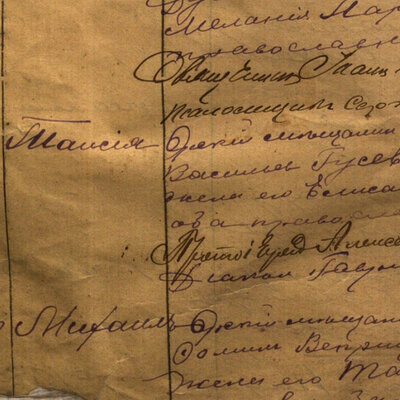 Меланія Пар
православн
Священникъ Іоанн
Псаломщикъ Серг
Таисія Орскій мѣщанинъ
Василій Гусев
жена его Елиса
ова православ
Протоіерей Алексѣ
Діаконъ Гавр
Михаилъ Орскій мѣщан
жена его Та